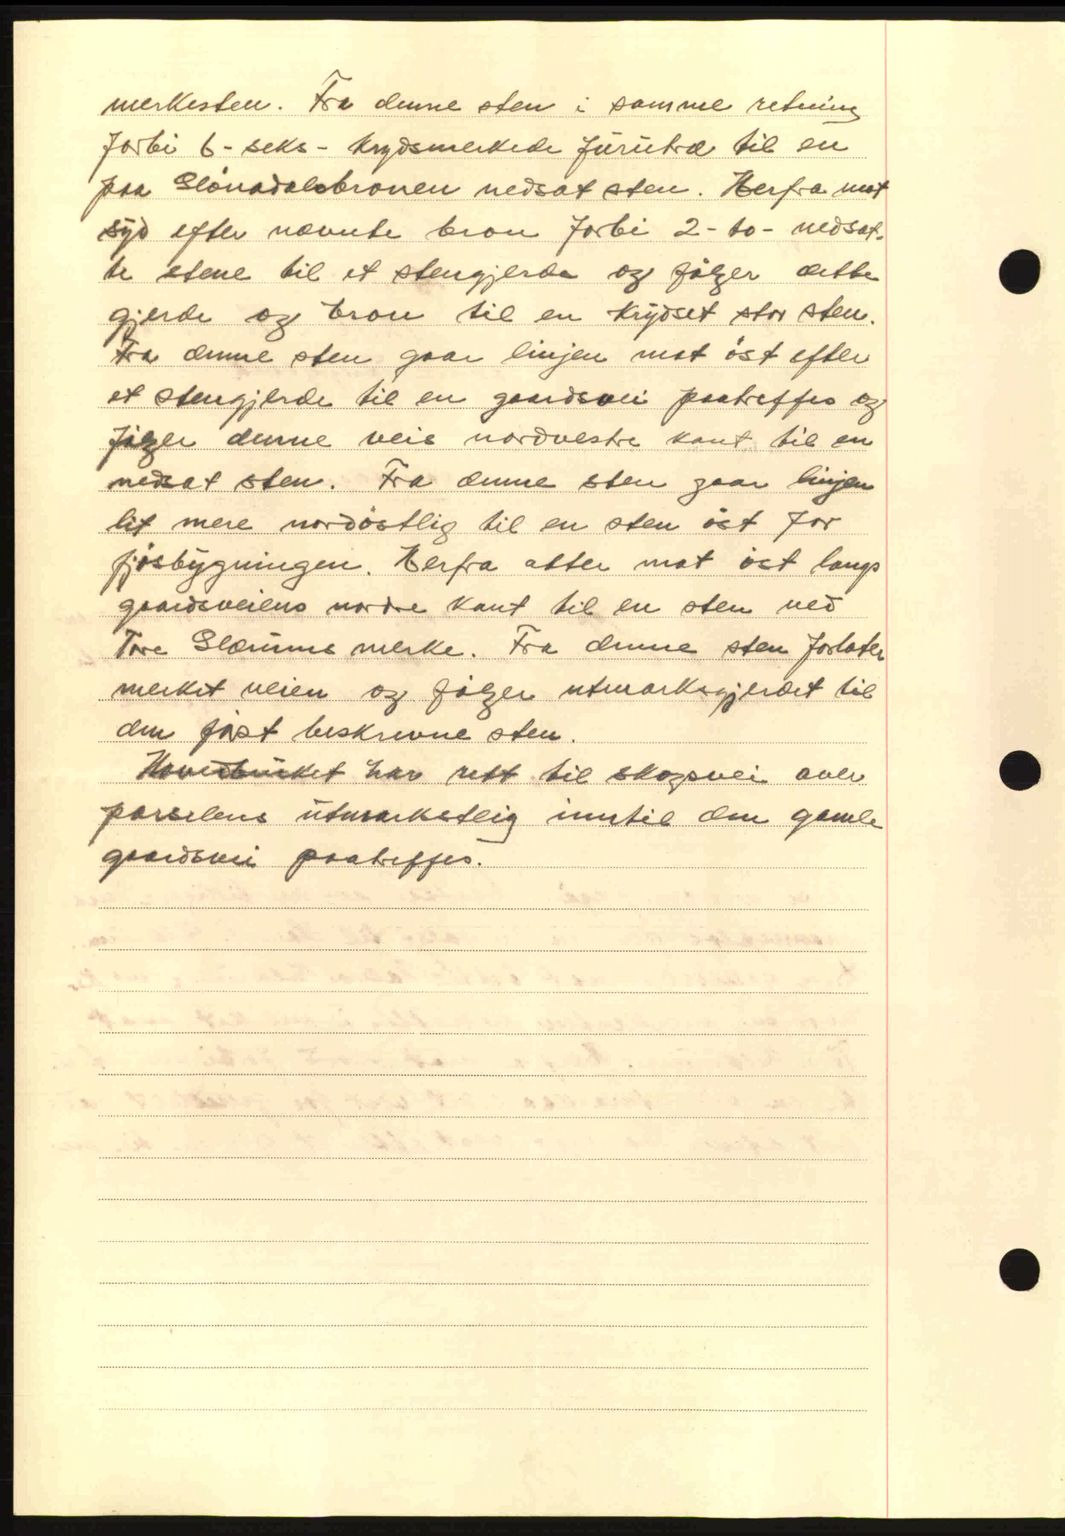 merkesten. Fra denne sten i samme retning
forbi 6-seks- krydsmerkede furutræ til en
paa Slönadalsbronen nedsat sten. Herfra mot
syd efter nævnte bron forbi 2-to- nedsat-
te stene til et stengjerde og følger dette
gjerde og bron til en krydset stor sten.
Fra denne sten gaar linjen mot öst efter
et stengjerde til en gaardsvei paatreffes og
følger denne veis nordvestre kant til en
nedsat sten. Fra denne sten gaar linjen
lit mere nordöstlig til en sten öst for
fjösbygningen. Herfra atter mot öst langs
gaardsveiens nordre kant til en sten ved
Tore Slæmms merke. Fra denne sten forlater
merket veien og følger utmarksgjerdet til
den först beskrevne sten.
Hovedbruket har rett til skogsvei over
parselens utmarksteig inntil den gamle
gaardsvei paatreffes.